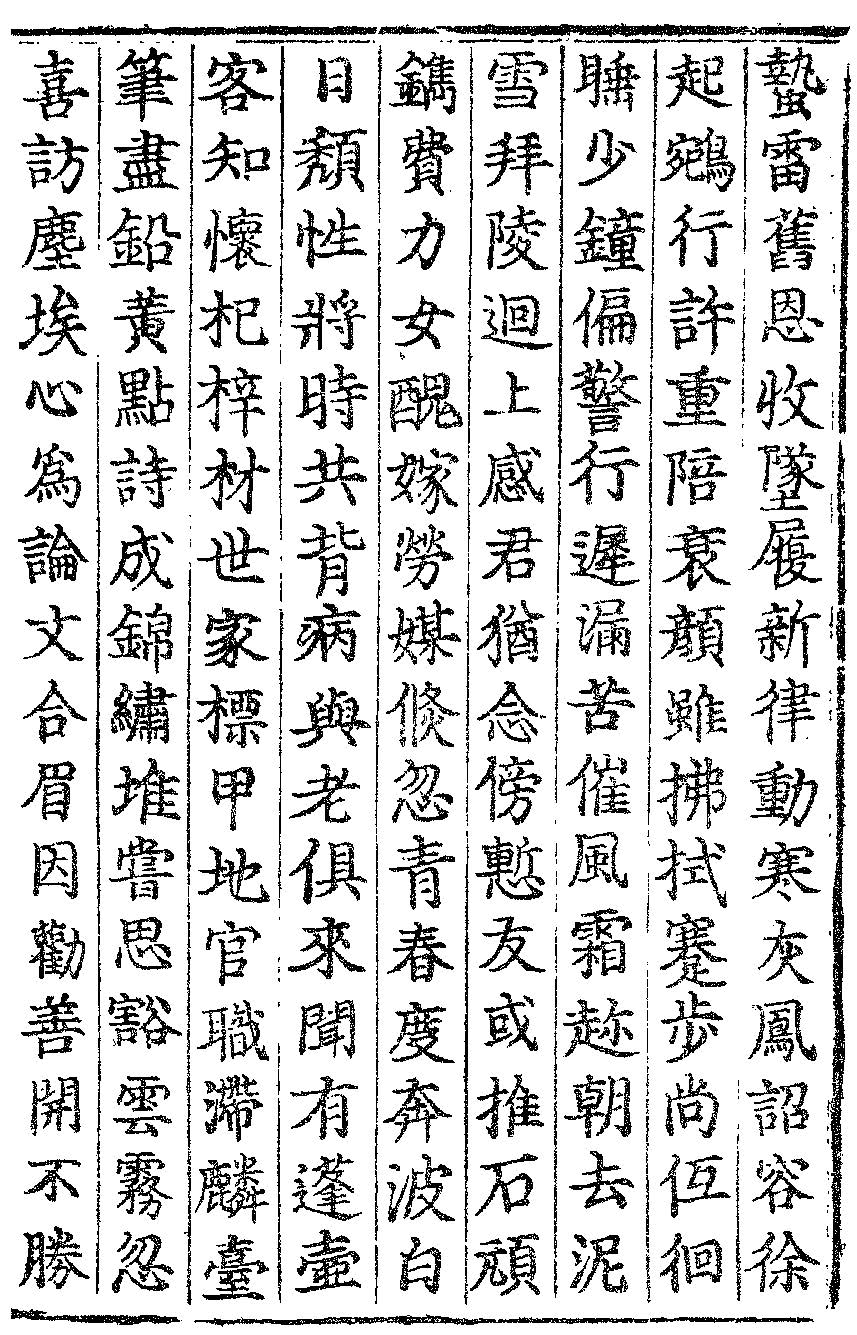 蟄雷舊恩收墜屨新律動寒灰鳳詔容徐
起鵷行許重陪衰顔雖拂拭蹇步尚低徊
睡少鐘偏警行遲漏苦催風霜趂朝去泥
雪拜陵迴上感君猶念傍慙友或推石頑
鐫費力女醜嫁勞媒倐忽青春度奔波白
日頽性將時共背病與老俱來聞有蓬壷
客知懷杞梓材世家標甲地官職滯麟臺
筆盡鉛黄點詩成錦繡堆嘗思豁雲霧忽
喜訪塵埃心爲論文合眉因勸善開不勝